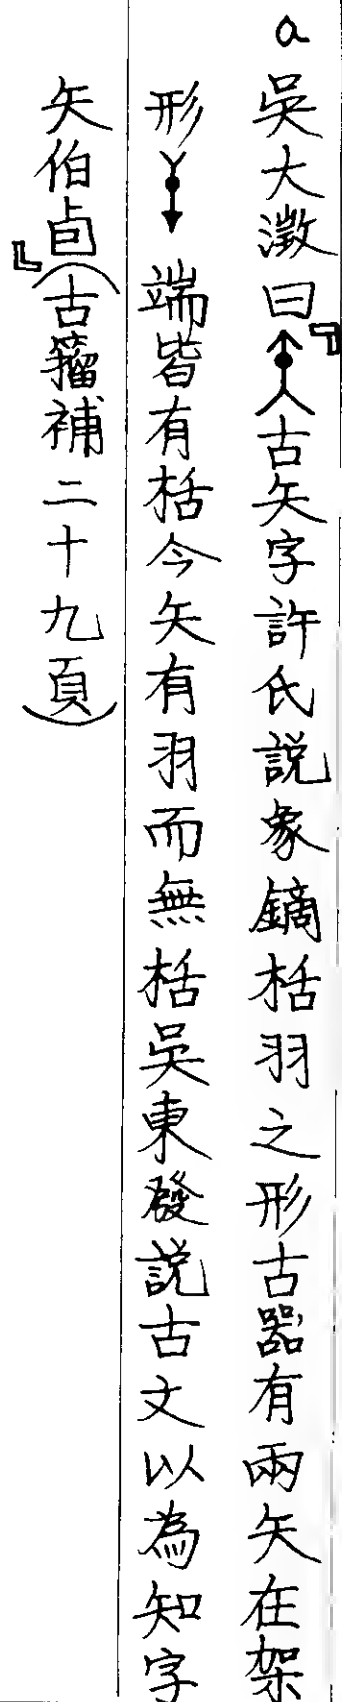 a吳大澂曰『古矢字許氏說象鏑栝羽之形古器有兩矢在架
形端皆有栝今矢有羽而無栝吳東發說古文以為知字
矢伯卣』(古籀補二十九頁)